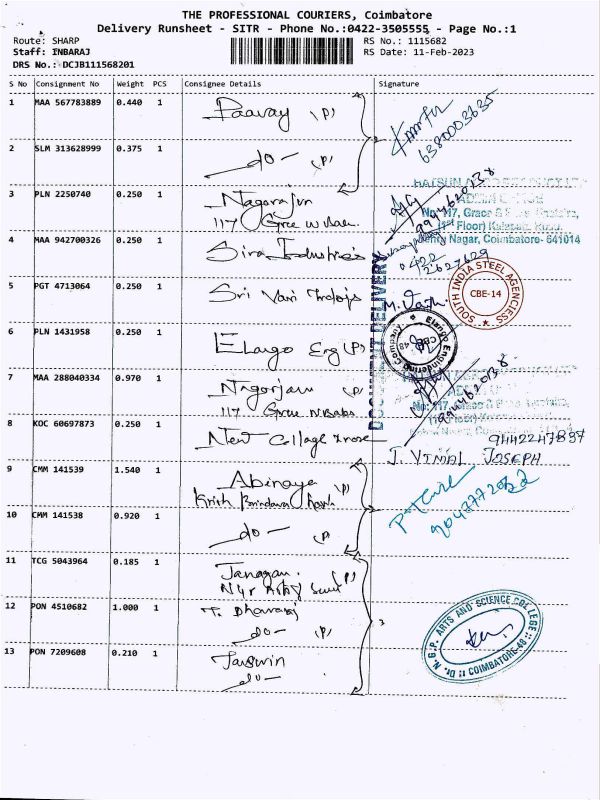 THE PROFESSIONAL COURIERS, Coimbatore
Delivery Runsheet - SITR - Phone No.:0422-3505555, - Page No.:1
Route: SHARP RS No.: 1115682
Staff: INBARAJ RS Date: 11-Feb-2023
DRS No.: DCJB111568201
S No Consignment No Weight PCS Consignee Details Signature
1 MAA 567783889 0.440 1 Paavay (P)
6380003635
2 SLM 313628999 0.375 1 do - (P)
HATSUN AGRO PRODUCT LTD
3 PLN 2250740 0.250 1 Nagarajun
117 Grace
9994620138
No: 117, Grace
(1st Floor) Kalapatti Road,
Nehru Nagar, Coimbatore- 641014
4 MAA 942700326 0.250 1 Siva Industries
0422
2627629
5 PGT 4713064 0.250 1 Sri Vari
SOUTH INDIA STEEL AGENCIESS
CBE-14
DOCUMENT DELIVERY
6 PLN 1431958 0.250 1 Elango Eng (P)
Elango Engineering Company
CBE-48
7 MAA 288040334 0.970 1 Nagarjun (P)
117 Grace
9994620138
8 KOC 60697873 0.250 1 New College
9442247897
J. VIMAL JOSEPH
9 CMM 141539 1.540 1 Abinaya (P)
Krith Brindavan
2
9047772022
10 CMM 141538 0.920 1 do - (P)
11 TCG 5043964 0.185 1 Janagan. (P)
12 PON 4510682 1.000 1 T. Dhanaraj
do - (P)
3
Dr. N. G.P. ARTS AND SCIENCE COLLEGE
COIMBATORE-48
13 PON 7209608 0.210 1 Jaswin
do -